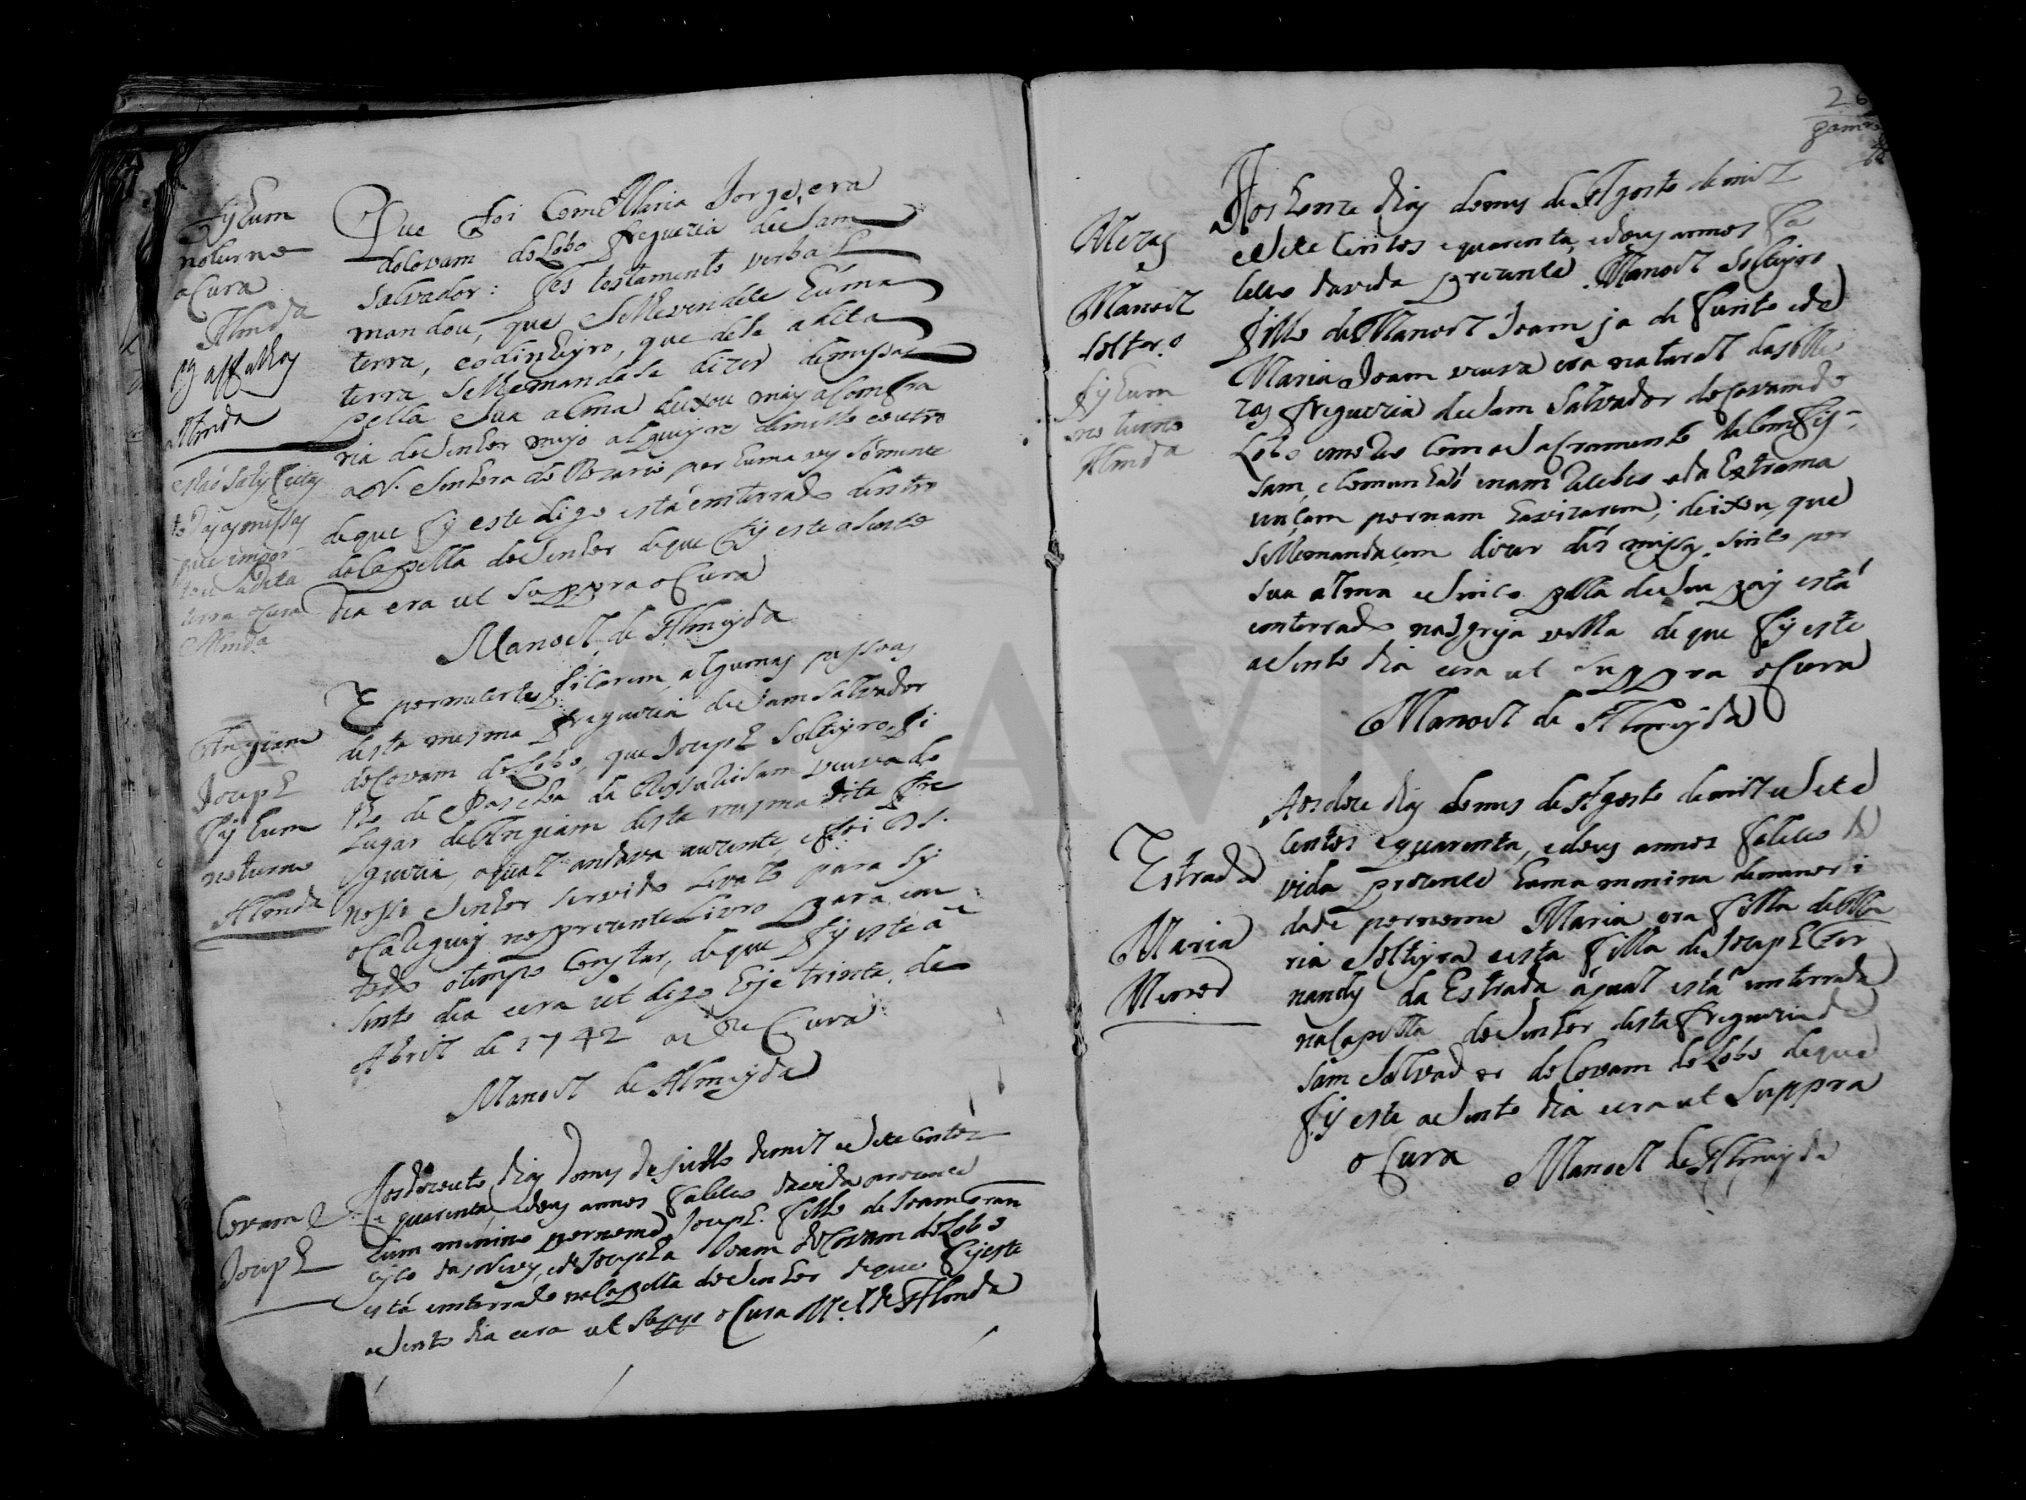 Fis hum
noturno
o Cura
Almda
pg as falhas
Almda
estaõ satisfeitas
todas as missas
que impor
tou a dita
terra o Cura
Almda
Que foi com Maria Jorge, era
do Covam do Lobo freguezia de Sam
Salvador: fes testamento verbal
mandou, que se lhe vendece huma
terra, e o dinheyro, que dese a dita
terra se lhe mandase dizer de missas
pella sua alma deixou mais a Comfra
ria do Senhor meyo alqueyre de milho e outro
a N. Senhora do Rozario por huma ves somente
de que fis este digo está enterrado dentro
da Capella do Senhor de que fis este asento
dia era ut suppra o Cura
Manoel de Almeyda
Angiam
Joseph
fis hum
noturno
Almda
E por me certeficarem algumas pessoas
desta mesma freguezia de Sam Salvador
do Covam do Lobo, que Joseph Solteyro fi
lho de Paschoa da Resureisam viuva do
lugar de Angiam desta mesma dita fre
guezia, o qual andava auzente, e foi Ds.
nosso Senhor servido levalo para sy
o Careguei no prezente livro para em
todo o tempo constar, de que fis este a
sento dia era ut digo hoje trinta de
Abril de 1742 o Cura
Manoel de Almeyda
Covam
Joseph
Aos dezouto dias do mes de Julho de mil e sete centos
e quarenta, e dous annos faleceo da vida prezente
hum minino por nome Joseph filho de Joam Fran
cisco das Neves, e de Josepha Joam do Covam do Lobo
está enterrado na Capella do Senhor de que fis este
asento dia era ut supp o Cura Mel de Almda
26
Meras
Manoel
soltero
fis hum
noturno
Almda
Aos honze dias do mes de Agosto de mil
e sete centos e quarenta, e dous annos fa
leceo da vida prezente Manoel Solteyro
filho de Manoel Joam ja defunto e de
Maria Joam viuva era natural das Me
ras freguezia de Sam Salvador do Covam do
Lobo morreo com o Sacramento da Comfis-
sam, e Comunhaõ nam recebeo o da Extrema
unçam por nam havizarem; deixou, que
se lhe mandacem dizer dés missas, sinco por
sua alma e sinco pella de seu pay está
enterrado na Igreja velha de que fis este
asento dia era ut suppra o Cura
Manoel de Almeyda
Estrada
Maria
Menor
Aos doze dias do mes de Agosto de mil e sete
centos e quarenta, e dous annos faleceo da
vida prezente huma minina de menor i
dade por nome Maria era filha de Ma
ria Solteyra e esta filha de Joseph Fer
nandes da Estrada á qual está enterrada
na Capella do Senhor desta freguezia de
Sam Salvador do Covam do Lobo de que
fis este asento dia era ut suppra
o Cura Manoel de Almeyda